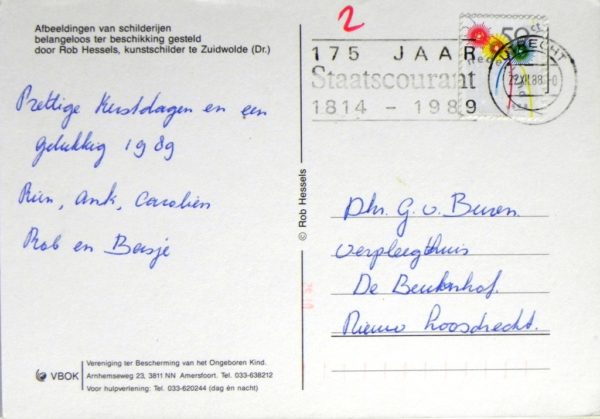 Afbeeldingen van schilderijen
belangeloos ter beschikking gesteld
door Rob Hessels, kunstschilder te Zuidwolde (Dr.)
Prettige Kerstdagen en een
gelukkig 1989
Rien, Ank, Carolien
Rob en Basje
VBOK
Vereniging ter Bescherming van het Ongeboren Kind.
Arnhemseweg 23, 3811 NN Amersfoort. Tel. 033-638212
Voor hulpverlening: Tel. 033-620244 (dag én nacht)
© Rob Hessels
2
175 JAAR
Staatscourant
1814 - 1989
50 c
Nederland
UTRECHT
22.XII.88
Dhr. G. v. Buren.
Verpleeghuis
De Beukenhof.
Nieuw Loosdrecht.